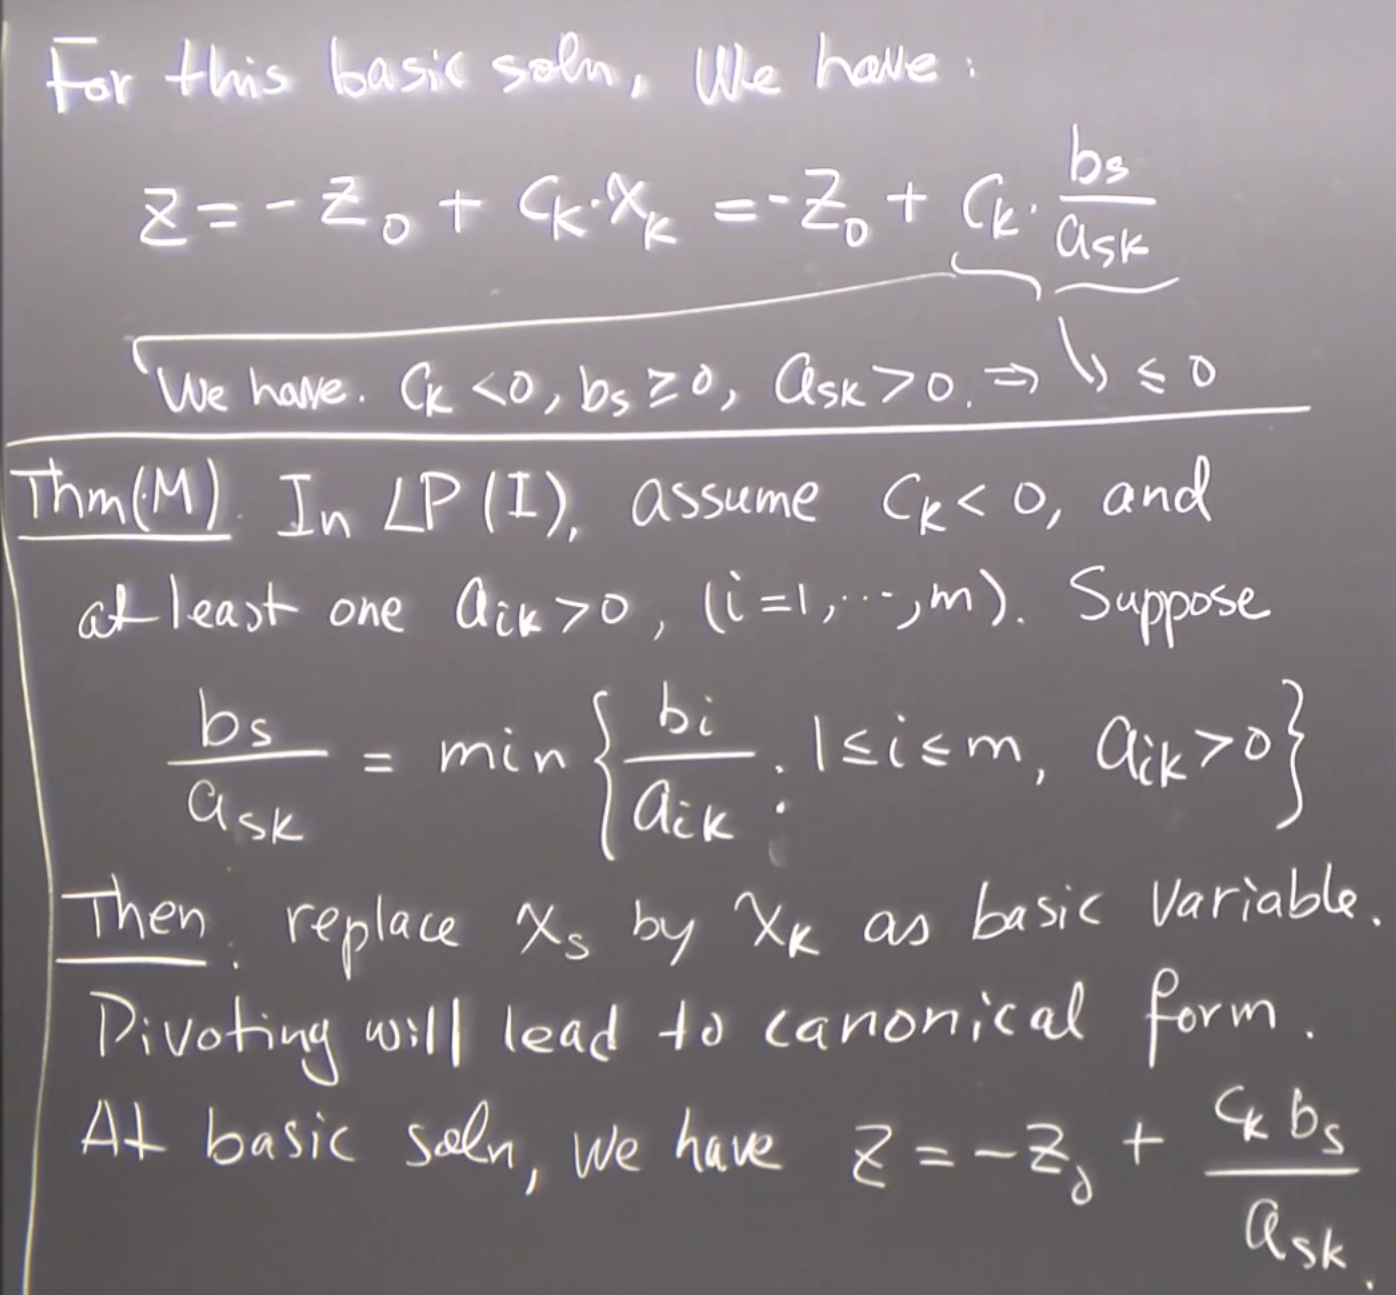 For this basic soln, We have:
z = -z₀ + Cₖ·xₖ = -z₀ + Cₖ· bₛ/aₛₖ
We have. Cₖ < 0, bₛ ≥ 0, aₛₖ > 0. ⇒ ↳ ≤ 0
Thm(M). In LP(I), assume Cₖ < 0, and
at least one aᵢₖ > 0, (i=1,...,m). Suppose
bₛ/aₛₖ = min { bᵢ/aᵢₖ : 1≤i≤m, aᵢₖ>0 }
Then: replace xₛ by xₖ as basic variable.
Pivoting will lead to canonical form.
At basic soln, we have z = -z₀ + Cₖbₛ/aₛₖ.